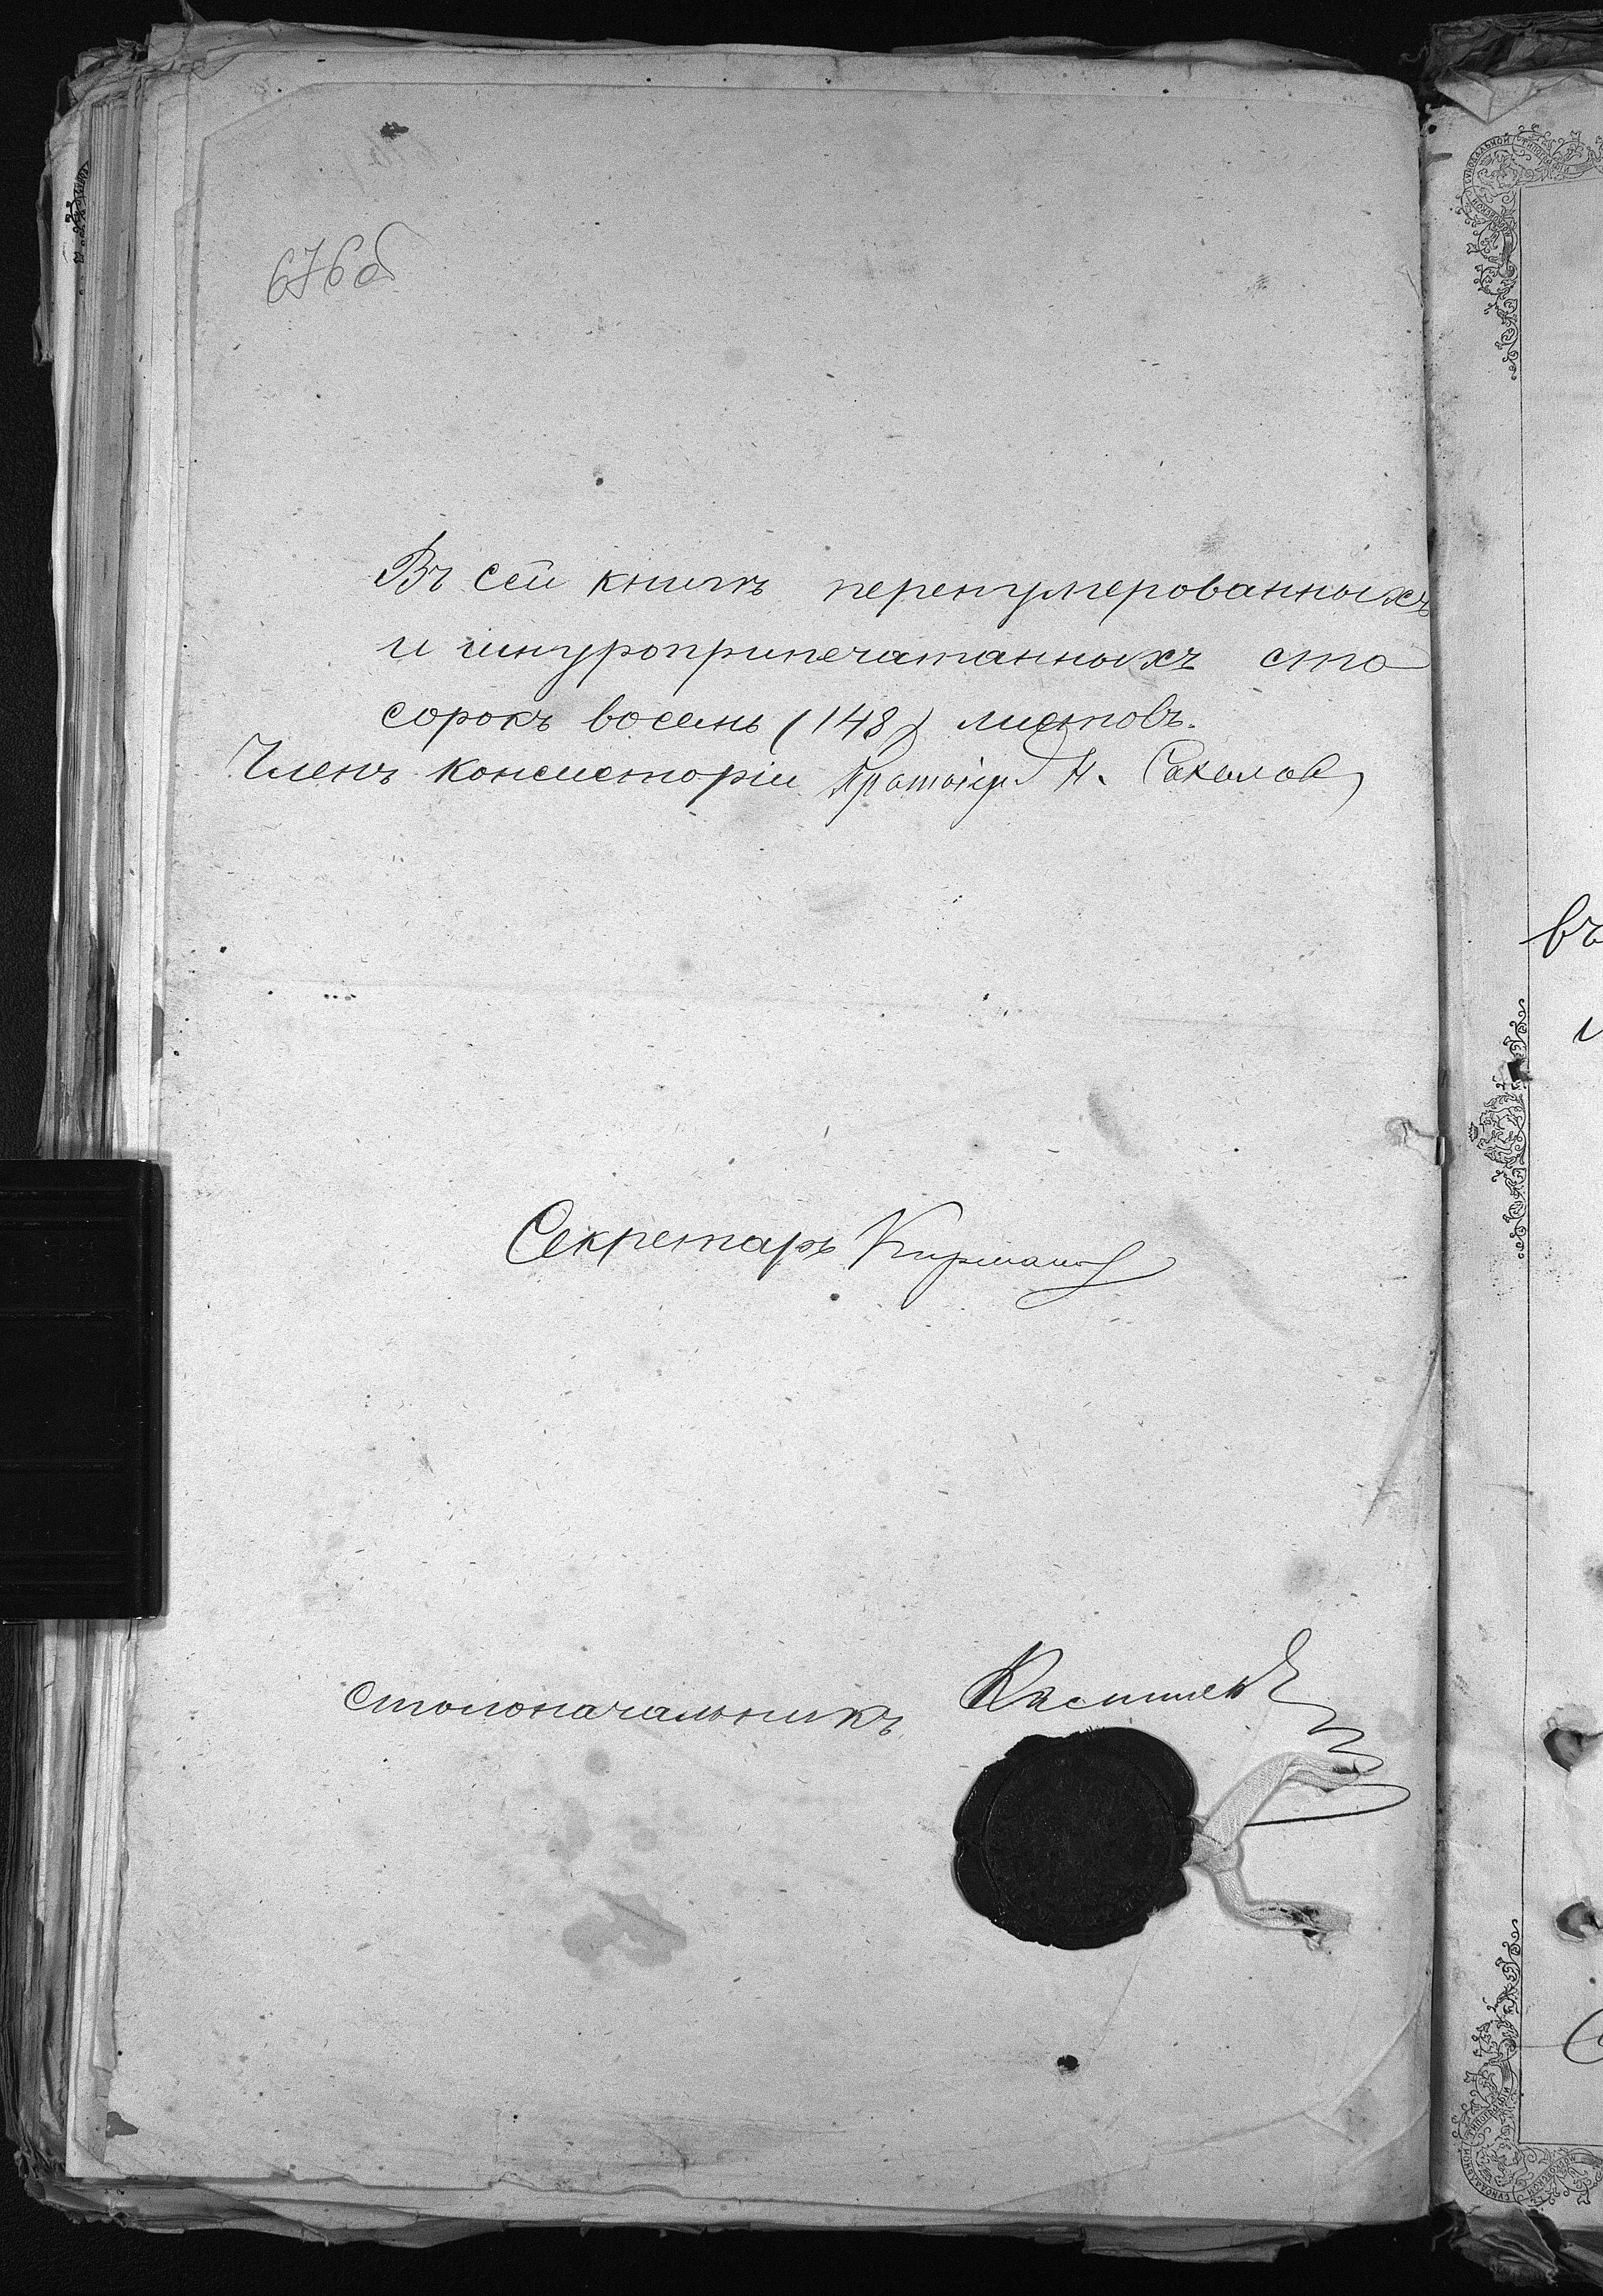 676об
Въ сей книгѣ перенумерованныхъ
и шнуроприпечатанныхъ сто
сорокъ восемь (148) листовъ.
Членъ Консисторіи Протоіер. Н. Соколовъ
Секретарь
Столоначальникъ
въ